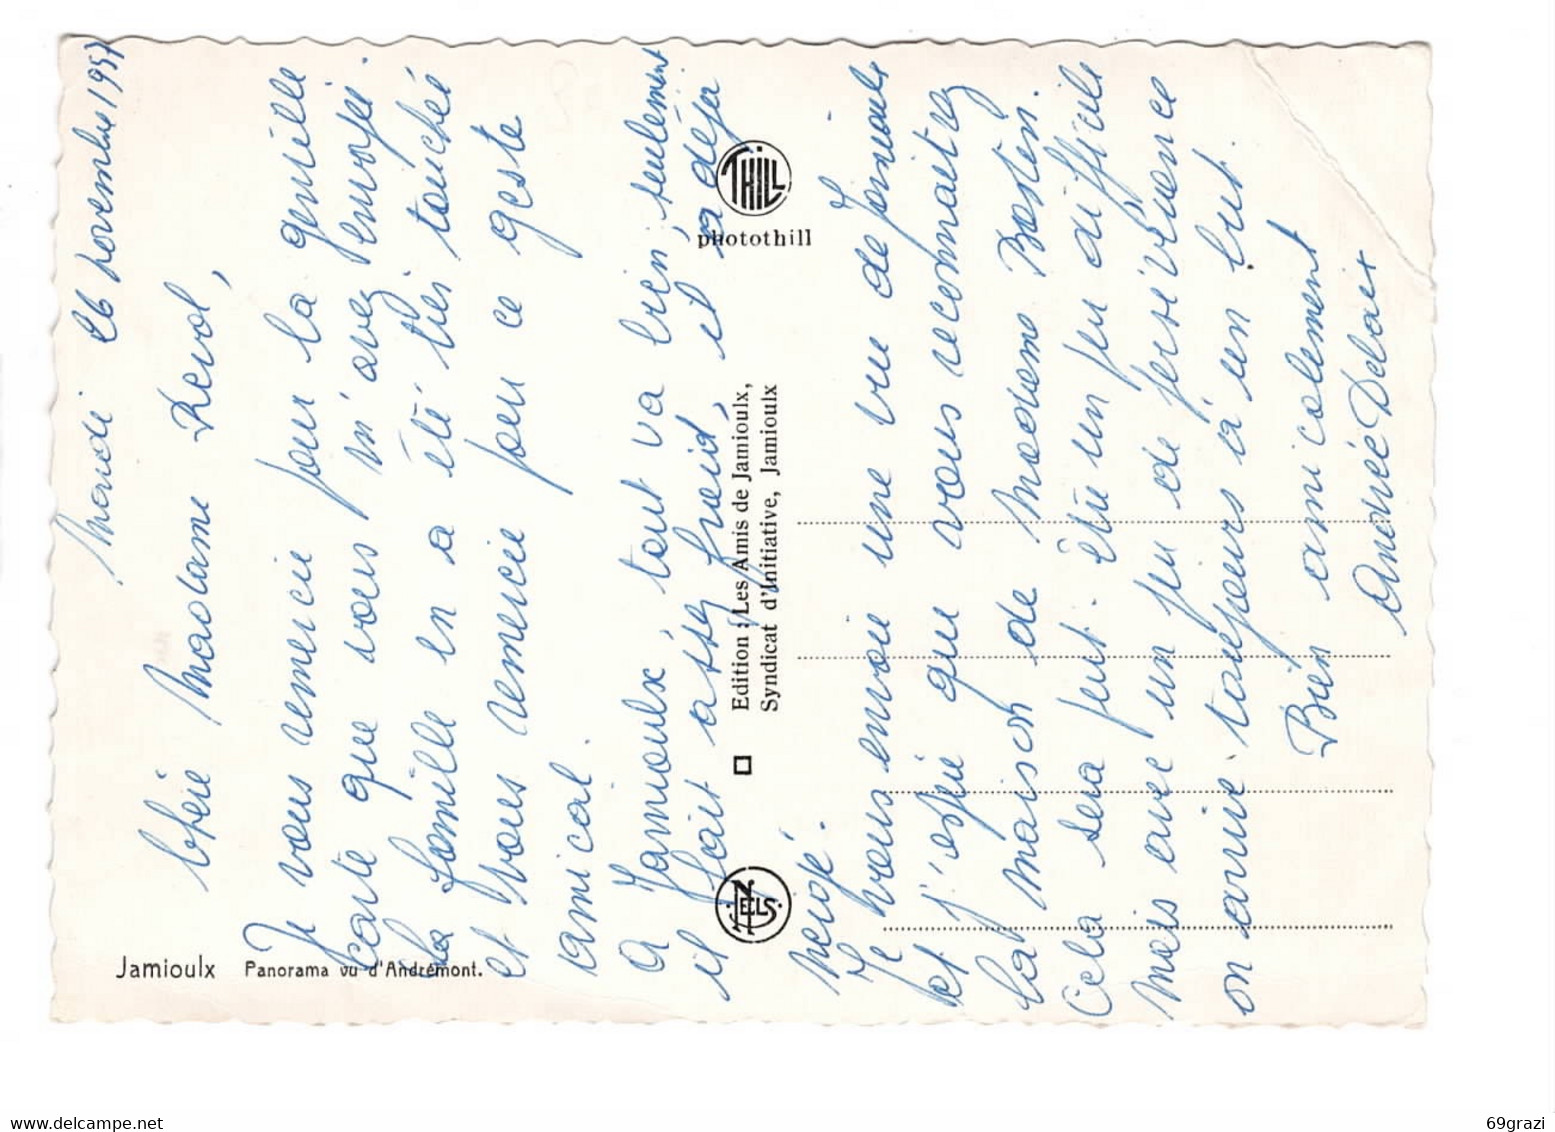 Mardi 26 novembre 1957
Chère Madame Revol,
Je vous remercie pour la gentille
carte que vous m'avez envoyé.
La famille en a été très touchée
et vous remercie pour ce geste
amical.
A Jamioulx, tout va bien, seulement
il fait assez froid, il a déjà
neigé.
Je vous envoie une vue de Jamioulx
et j'espère que vous reconnaitrez
la maison de Madame Basten.
Cela sera peut-être un peu difficile
mais avec un peu de persévérence
on arrive toujours à un but.
Bien amicalement
Andrée Delait
Jamioulx Panorama vu d'Andrémont.
NELS
Edition : Les Amis de Jamioulx,
Syndicat d'Initiative, Jamioulx
THILL
photothill
69grazi